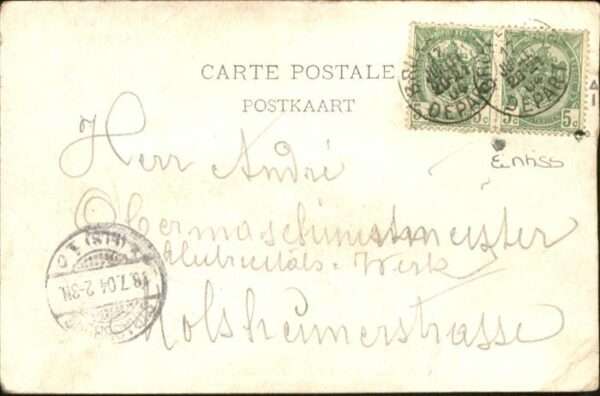 CARTE POSTALE
POSTKAART
DEPART
DEPART
5c
5c
Einriss
Herr André
Obermaschinenmeister
Elektricitäts-Werk
Molsheimerstrasse
18.7.04 2-3N.
(ELS)